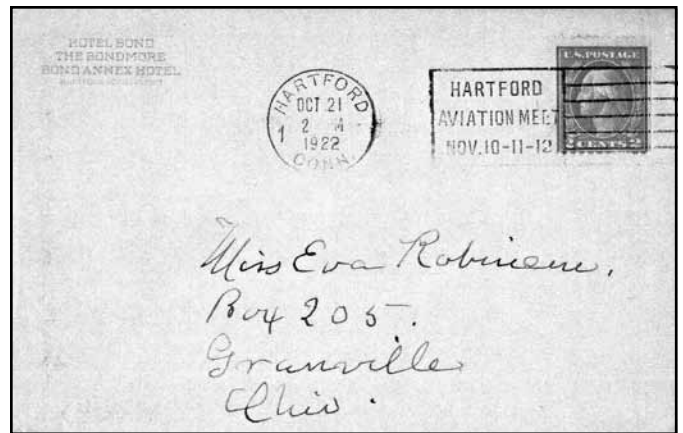 HOTEL BOND
THE BONDMORE
BOND ANNEX HOTEL
HARTFORD
OCT 21
2 M
1
1922
CONN.
HARTFORD
AVIATION MEET
NOV. 10-11-12
U.S. POSTAGE
2 CENTS 2
Miss Eva Robinson,
Box 205.
Granville
Ohio.